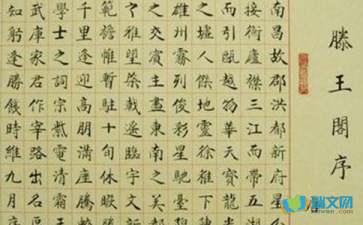 滕王閣序
南昌故郡洪都新府星
接衡廬襟三江而帶五湖
而引甌越物華天寶
之墟人傑地靈徐孺
雄州霧列俊彩星馳
之交賓主盡東南之美
雅望棨戟遙臨宇文新
範襜帷暫駐十旬休
千里逢迎高朋滿座騰
學士之詞宗紫電清霜王
武庫家君作宰路出名區
知躬逢勝餞時維九月序
瑞文网